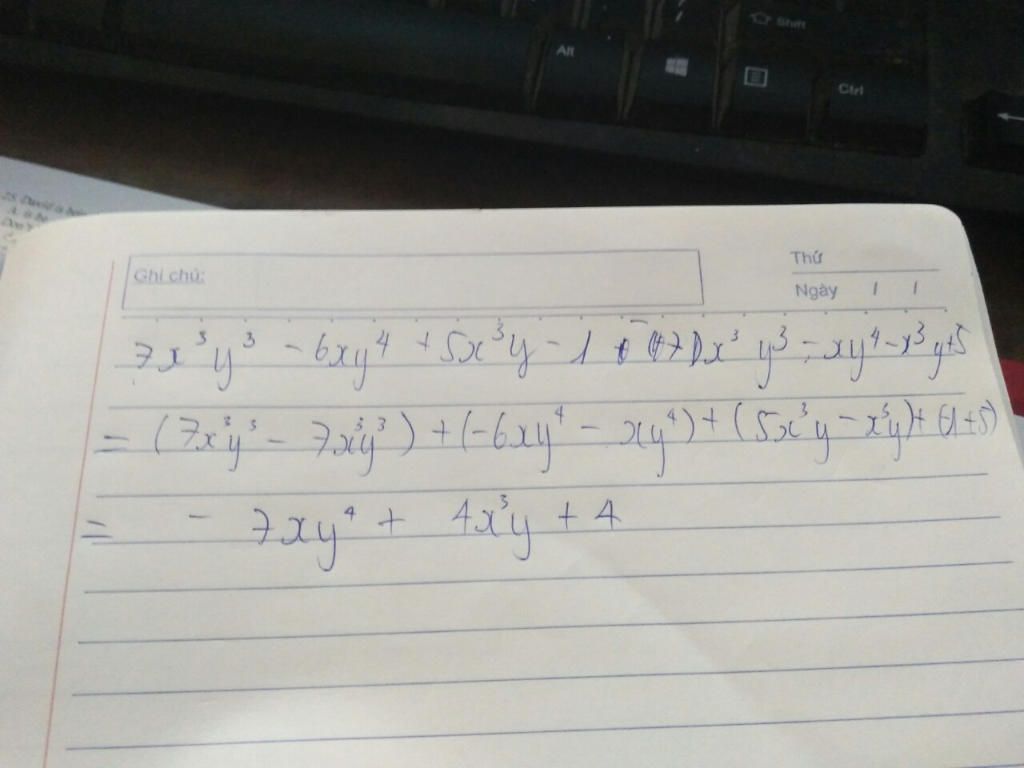 Shift
Alt
Ctrl
25. David is
A. is
Ghi chú:
Thứ
Ngày / /
7x³y³ - 6xy⁴ + 5x³y - 1 - 7x³y³ - xy⁴ - x³y + 5
= (7x³y³ - 7x³y³) + (-6xy⁴ - xy⁴) + (5x³y - x³y) + (-1 + 5)
= - 7xy⁴ + 4x³y + 4